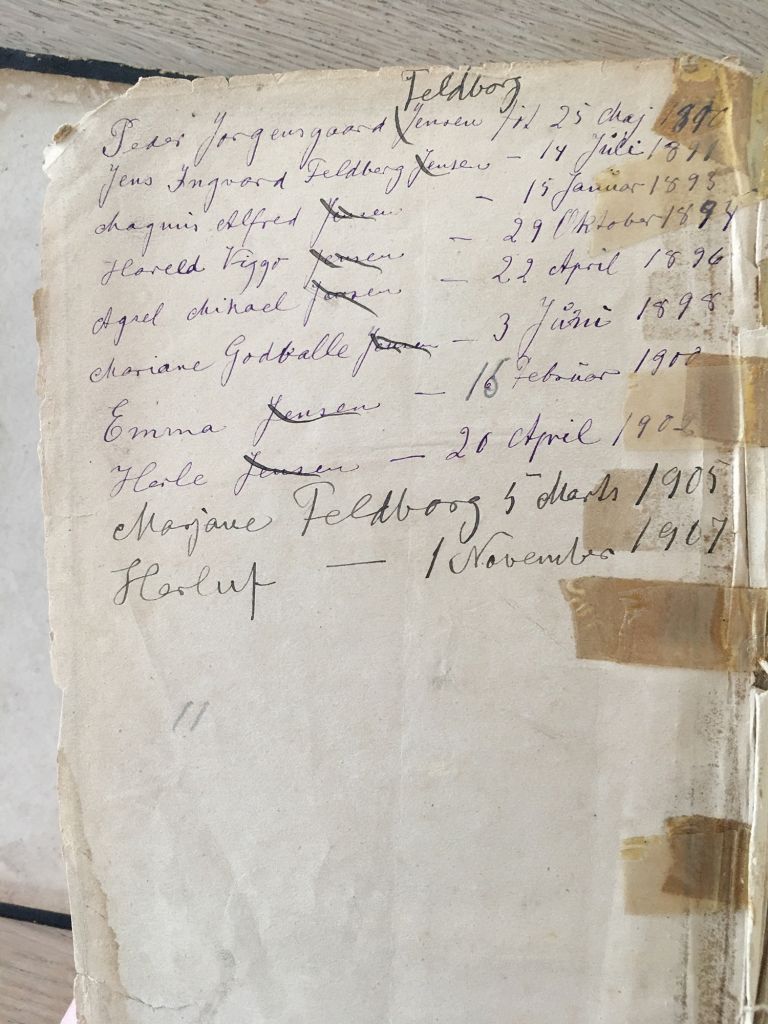 Feldborg
Peder Jorgensgaard Jensen föd 25 Maj 1890
Jens Ingvard Feldborg Jensen - 14 Juli 1891
Magnus Alfred Jensen - 15 Januar 1893
Harald Viggo Jensen - 29 Oktober 1894
Agsel Mikael Jensen - 22 April 1896
Mariane Godballe Jensen - 3 Juni 1898
Emma Jensen - 16 Februar 1900
Helle Jensen - 20 April 1902
Marjane Feldborg 5 Marts 1905
Herluf — 1 November 1907
11